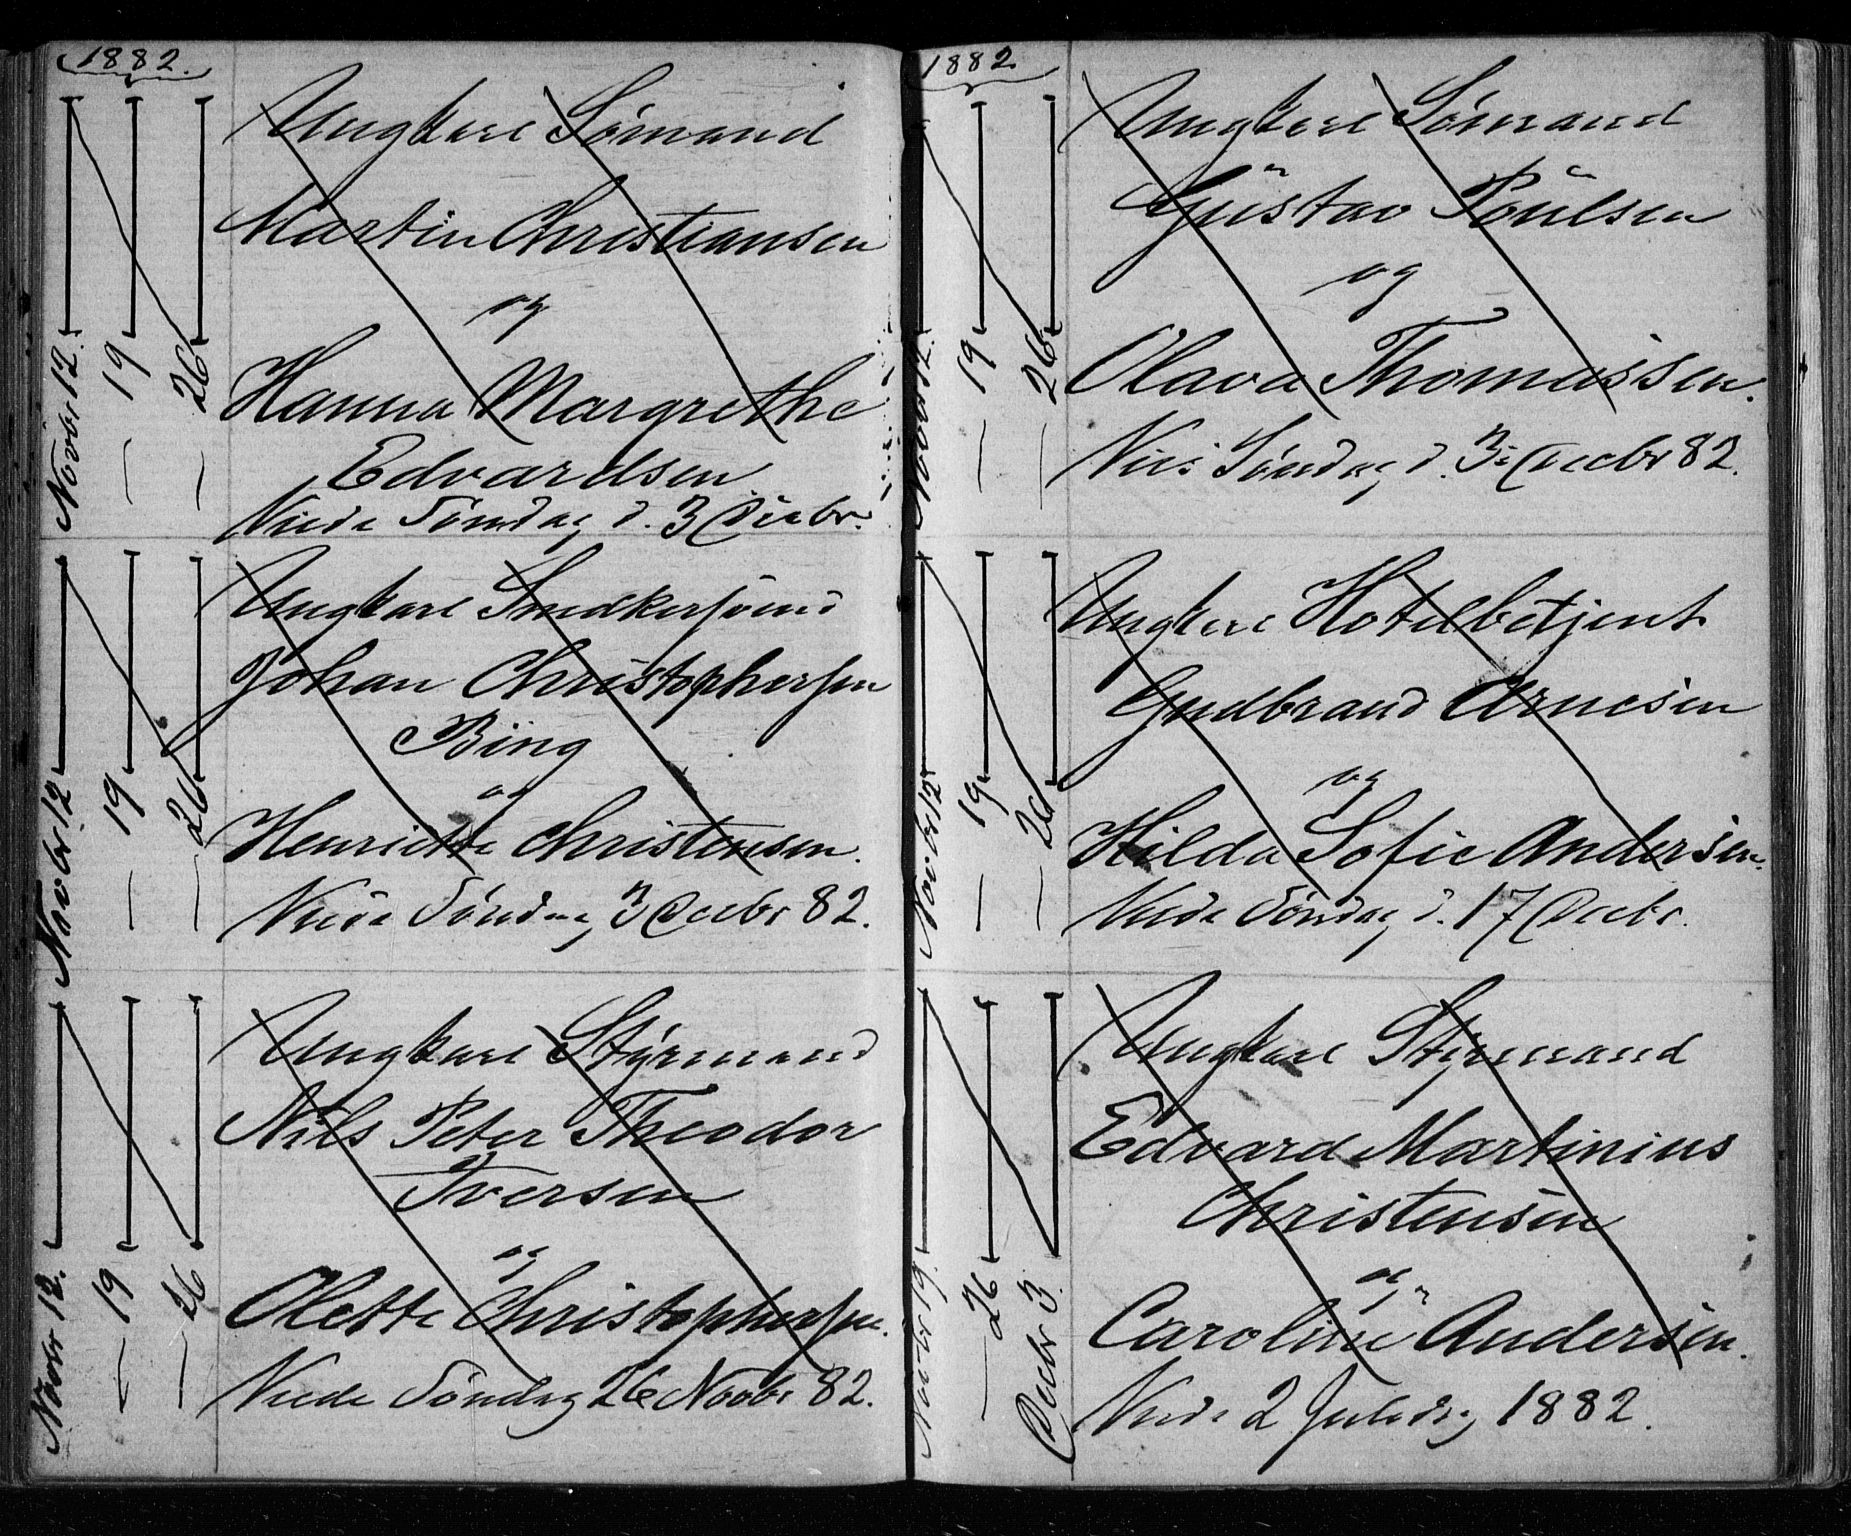 1882.
Novbr 12. — 19 — 26
Ungkarl Sømand
Martin Christiansen
og
Hanna Margrethe
Edvardsen
Viede Søndag d. 3 Decbr.
Novbr 12 — 19 — 26
Ungkarl Snedkersvend
Johan Christophersen
Bing
og
Henriette Christensen.
Viede Søndag 3 Decbr 82.
Novbr 12. — 19 — 26
Ungkarl Styrmand
Nils Peter Theodor
Iversen
og
Olette Christophersen.
Viede Søndag 26 Novbr 82.
1882.
Novbr 12. — 19 — 26
Ungkarl Sømand
Gustav Poulsen
og
Olava Thomassen.
Søndag d. 3 Decbr 82.
Novbr 12 — 19 — 26
Ungkarl Hotelbetjent
Gudbrand Arnesen
og
Hilda Sofie Andersen.
Viede Søndag d. 17 Decbr.
Novbr 19. — 26 Decbr 3.
Ungkarl Styrmand
Edvard Martinius
Christensen
og
Caroline Andersen.
Viede 2 Juledag 1882.